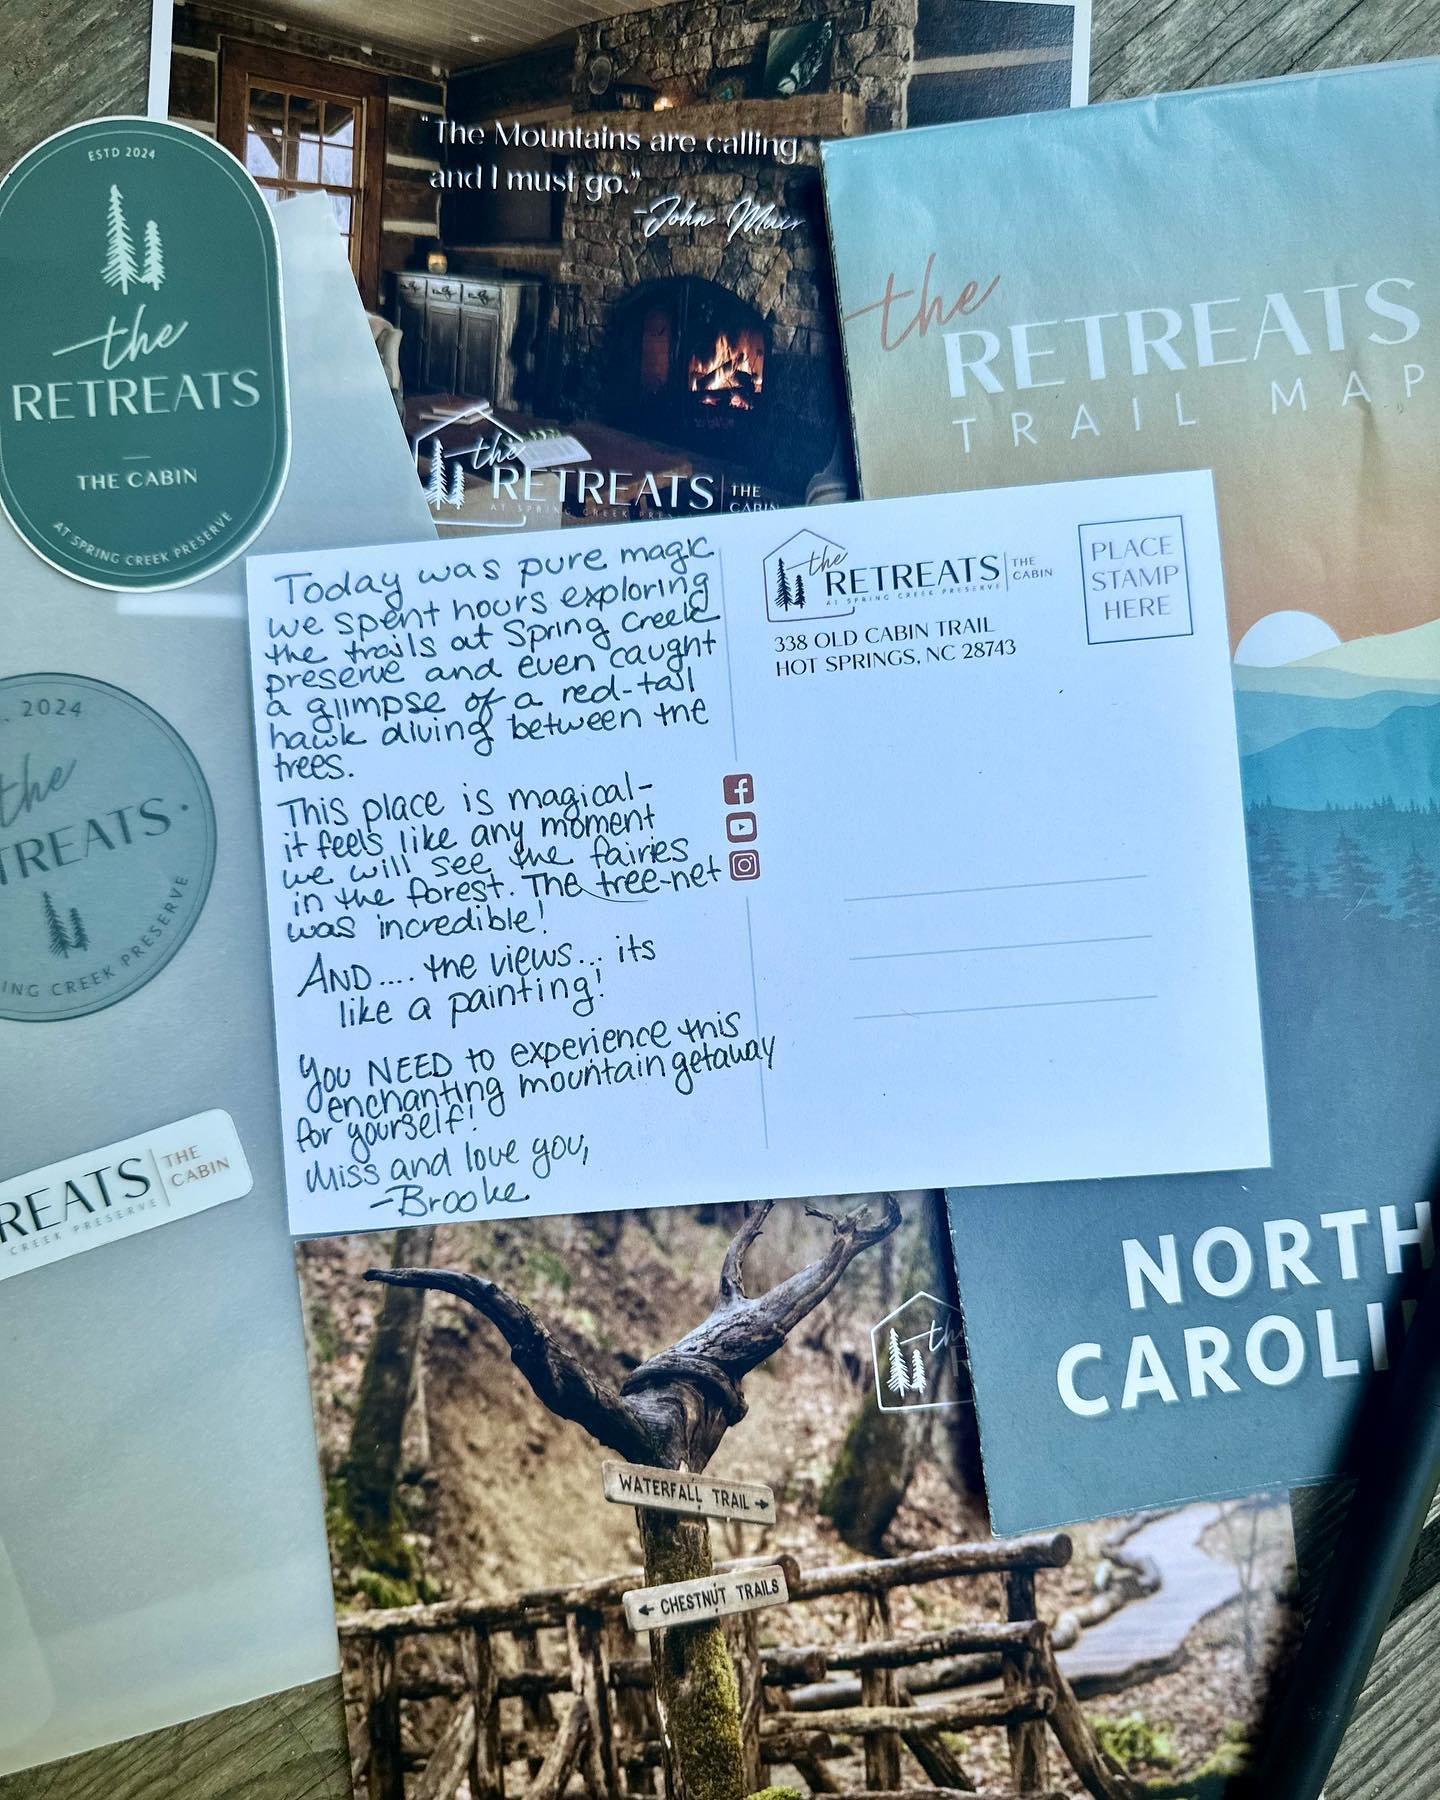 "The Mountains are calling
and I must go."
-John Muir
the
RETREATS THE
AT SPRING CREEK
ESTD 2024
the
RETREATS
THE CABIN
AT SPRING CREEK PRESERVE
the
RETREATS
TRAIL MAP
Today was pure magic
we spent hours exploring
the trails at Spring Creek
preserve and even caught
a glimpse of a red-tail
hawk diving between the
trees.
This place is magical-
it feels like any moment
we will see the fairies
in the forest. The tree-net
was incredible!
AND.... the views... its
like a painting!
You NEED to experience this
enchanting mountain getaway
for yourself!
Miss and love you,
-Brooke
the
RETREATS THE
CABIN
AT SPRING CREEK PRESERVE
338 OLD CABIN TRAIL
HOT SPRINGS, NC 28743
PLACE
STAMP
HERE
2024
the
TREATS
ING CREEK PRESERVE
REATS THE
CABIN
CREEK PRESERVE
NORTH
CAROLI
the
WATERFALL TRAIL →
← CHESTNUT TRAILS